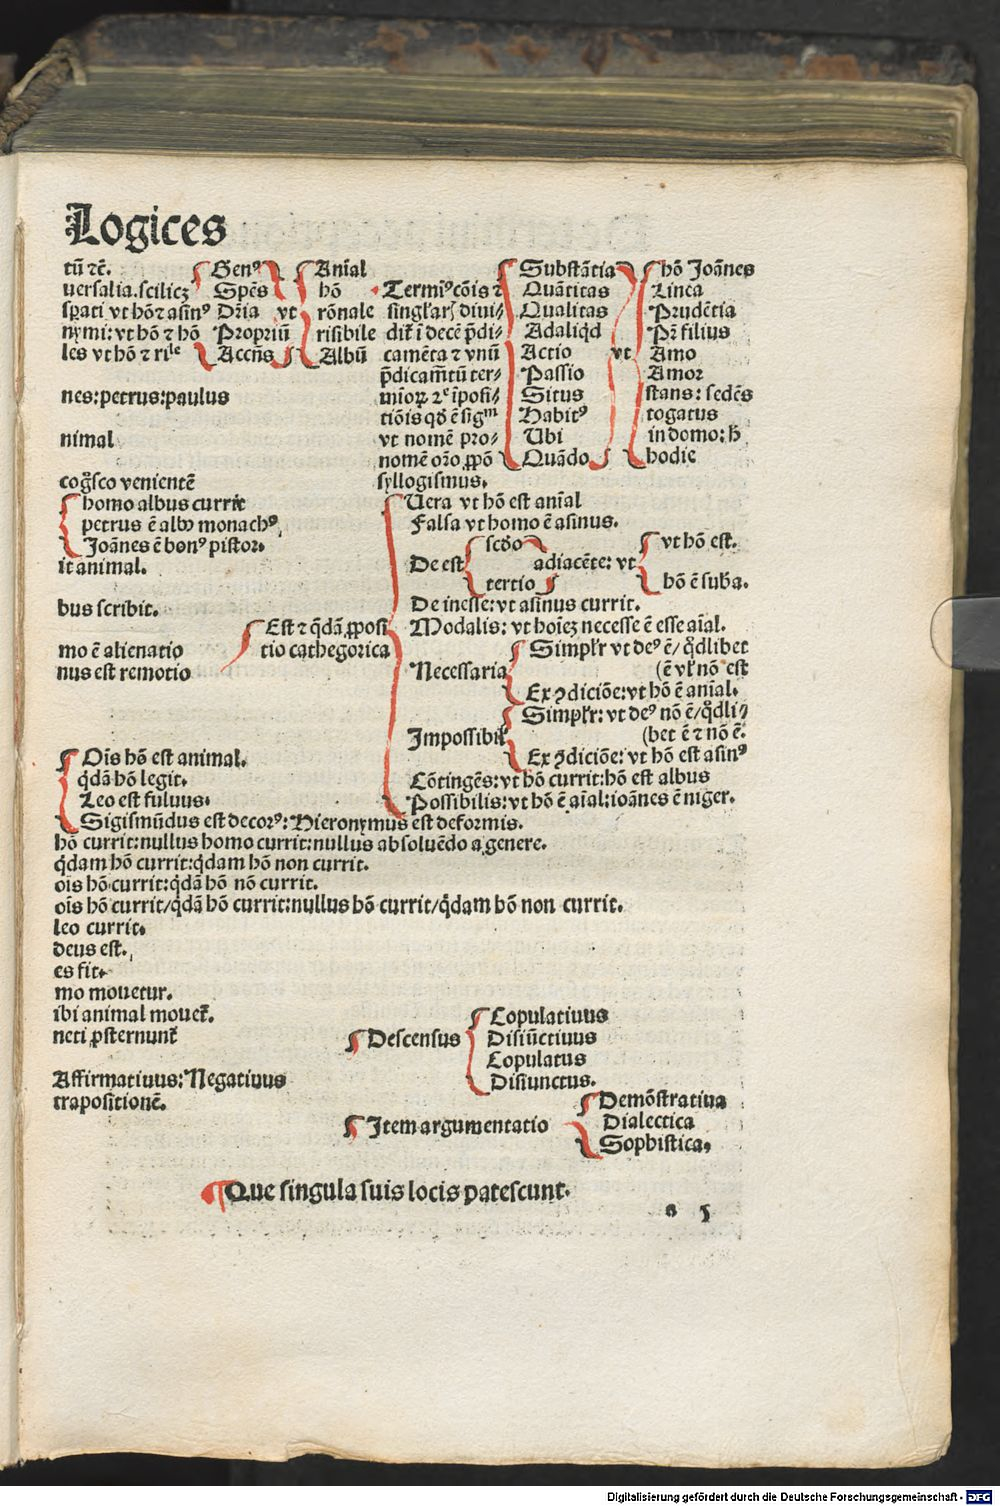 Logices
tū ⁊c̄.
uersalia.scilicꝫ
sp̄ati vt hō⁊ asinꝰ
nymi: vt hō ⁊ hō
les vt hō ⁊ riˡᵉ
Genꝰ
Spēs
Dr̄ia vt
Propriū
Accn̄s
Anīal
hō
rōnale
risibile
Albū
nes:petrus:paulus
nimal
Termiꝰ cōis ⁊
singlar diui⸗
dit̄ ī decē p̄di⸗
camēta ⁊ vnū
p̄dicam̄tū ter⸗
tiōis qd̄ ē sigᵐ
vt nomē pro⸗
nomē or̄o ꝓpō
syllogismus.
Substātia
Quātitas
Qualitas
Adaliqd
Actio vt
Passio
Situs
Habitꝰ
Ubi
Quādo
hō Joānes
Linea
Prudētia
Pr̄ filius
Amo
Amor
stans: sedēs
togatus
in domo: h̄
hodie
venientē
homo albus currit
petrus ē albꝰ monachꝰ
Joānes ē bonꝰ pistor.
it animal.
bus scribit.
mo ē alienatio
nus est remotio
Est ⁊ q̄dā ꝓposi
tio cathegorica
Uera vt hō est anīal
Falsa vt homo ē asinus.
De est
scd̄o
tertio
adiacēte: vt
vt hō est.
hō ē suba.
De inesse: vt asinus currit.
Modalis: vt hoīeꝫ necesse ē esse aīal.
Necessaria
Simpl̄r vt deꝰ ē/ q̄dlibet
(ē vl̄ nō est
Ex ꝯdiciōe: vt hō ē anīal.
Impossibil̄
Simpl̄r: vt deꝰ nō ē/q̄dli⸗
(bet ē ⁊ nō ē.
Ex ꝯdiciōe: vt hō est asinꝰ
Cōtingēs: vt hō currit: hō est albus
Possibilis: vt hō ē aīal: ioānes ē niger.
Oīs hō est animal.
q̄dā hō legit.
Leo est fuluus.
Sigismūdus est decorꝰ: Hieronymus est deformis.
hō currit: nullus homo currit: nullus absoluēdo a genere.
q̄dam hō currit: q̄dam hō non currit.
oīs hō currit: q̄dā hō nō currit.
oīs hō currit/q̄dā hō currit: nullus hō currit/q̄dam hō non currit.
leo currit.
deus est.
es fit.
mo mouetur.
ibi animal mouet̄.
neti ꝓsternunt̄
Affirmatiuus: Negatiuus
trapositionē.
Descensus
Copulatiuus
Disiūctiuus
Copulatus
Disiunctus.
Item argumentatio
Demōstratiua
Dialectica
Sophistica.
¶ Que singula suis locis patescunt.
Digitalisierung gefördert durch die Deutsche Forschungsgemeinschaft - DFG